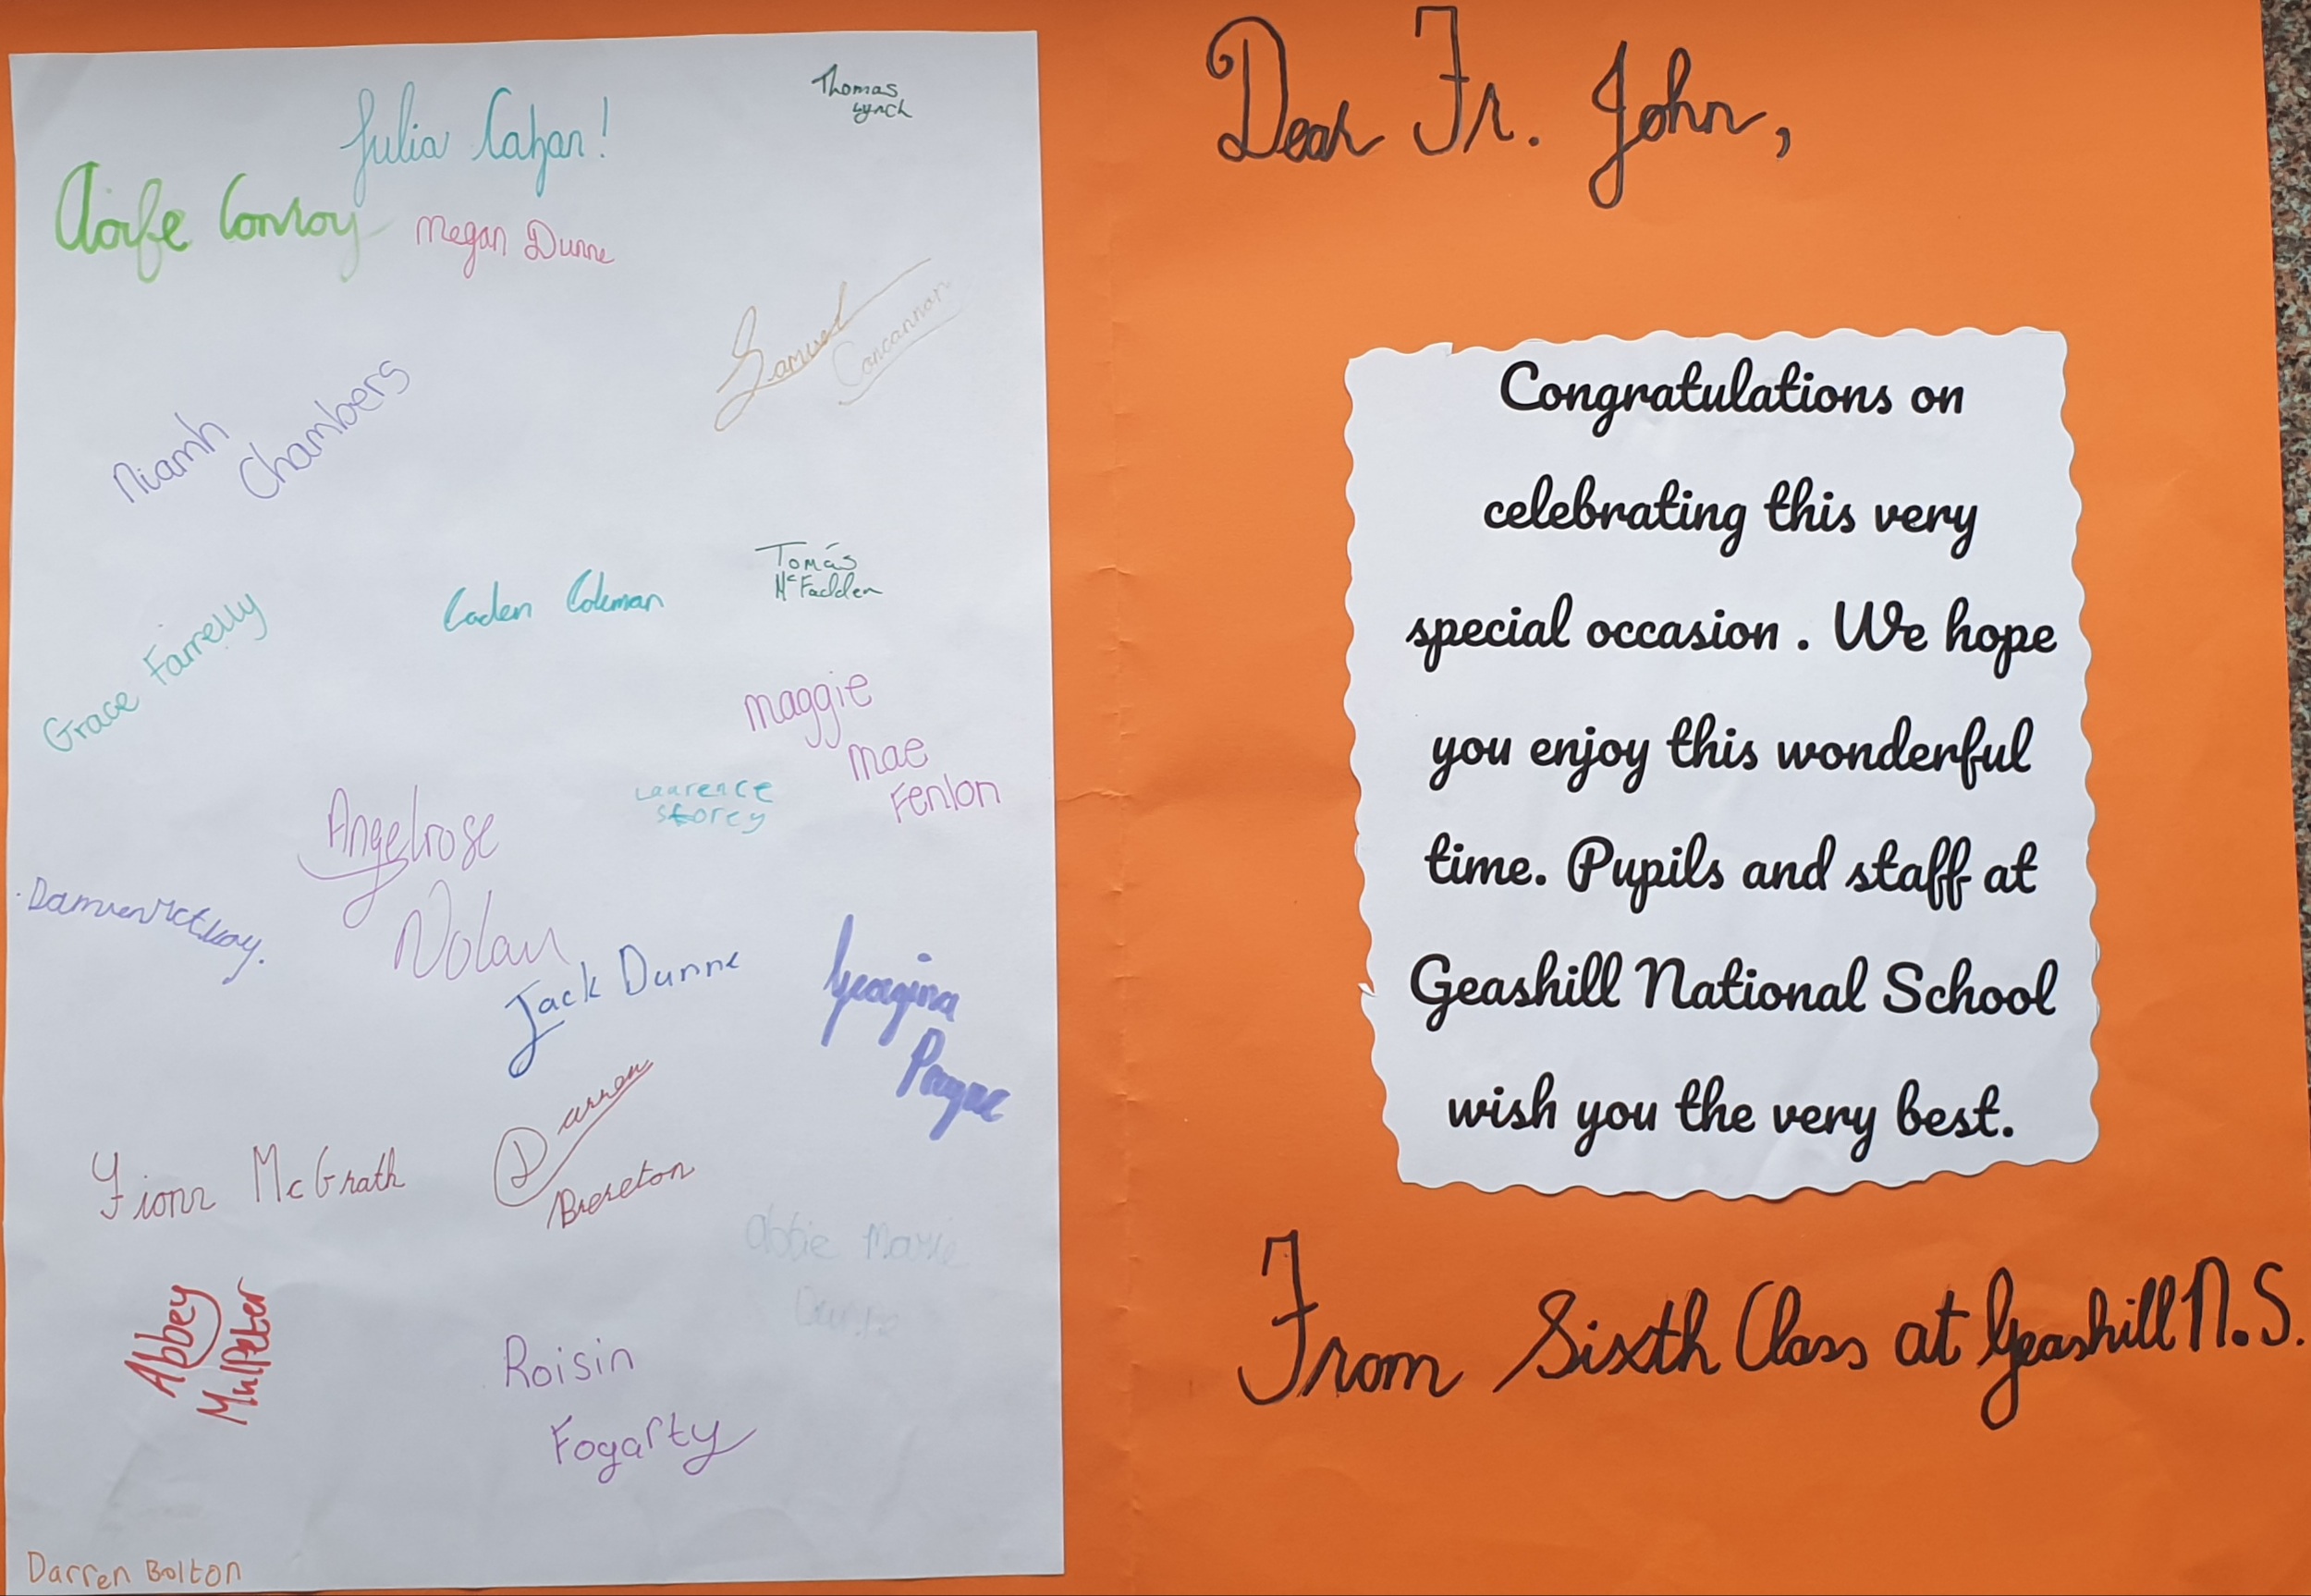 Julia Cahan!
Thomas
Lynch
Aoife Conroy
Megan Dunne
Samuel
Concannon
Niamh
Chambers
Caden Coleman
Tomás
McFadden
Grace Farrelly
Maggie
Mae
Fenlon
Laurence
Storey
Angelrose
Nolan
Jack Dunne
Georgina
Payne
Fionn McGrath
Darren
Brereton
Abbie Marie
Abbey
MulPeter
Roisin
Fogarty
Darren Bolton
Dear Fr. John,
Congratulations on
celebrating this very
special occasion . We hope
you enjoy this wonderful
time. Pupils and staff at
Geashill National School
wish you the very best.
From Sixth Class at Geashill N.S.